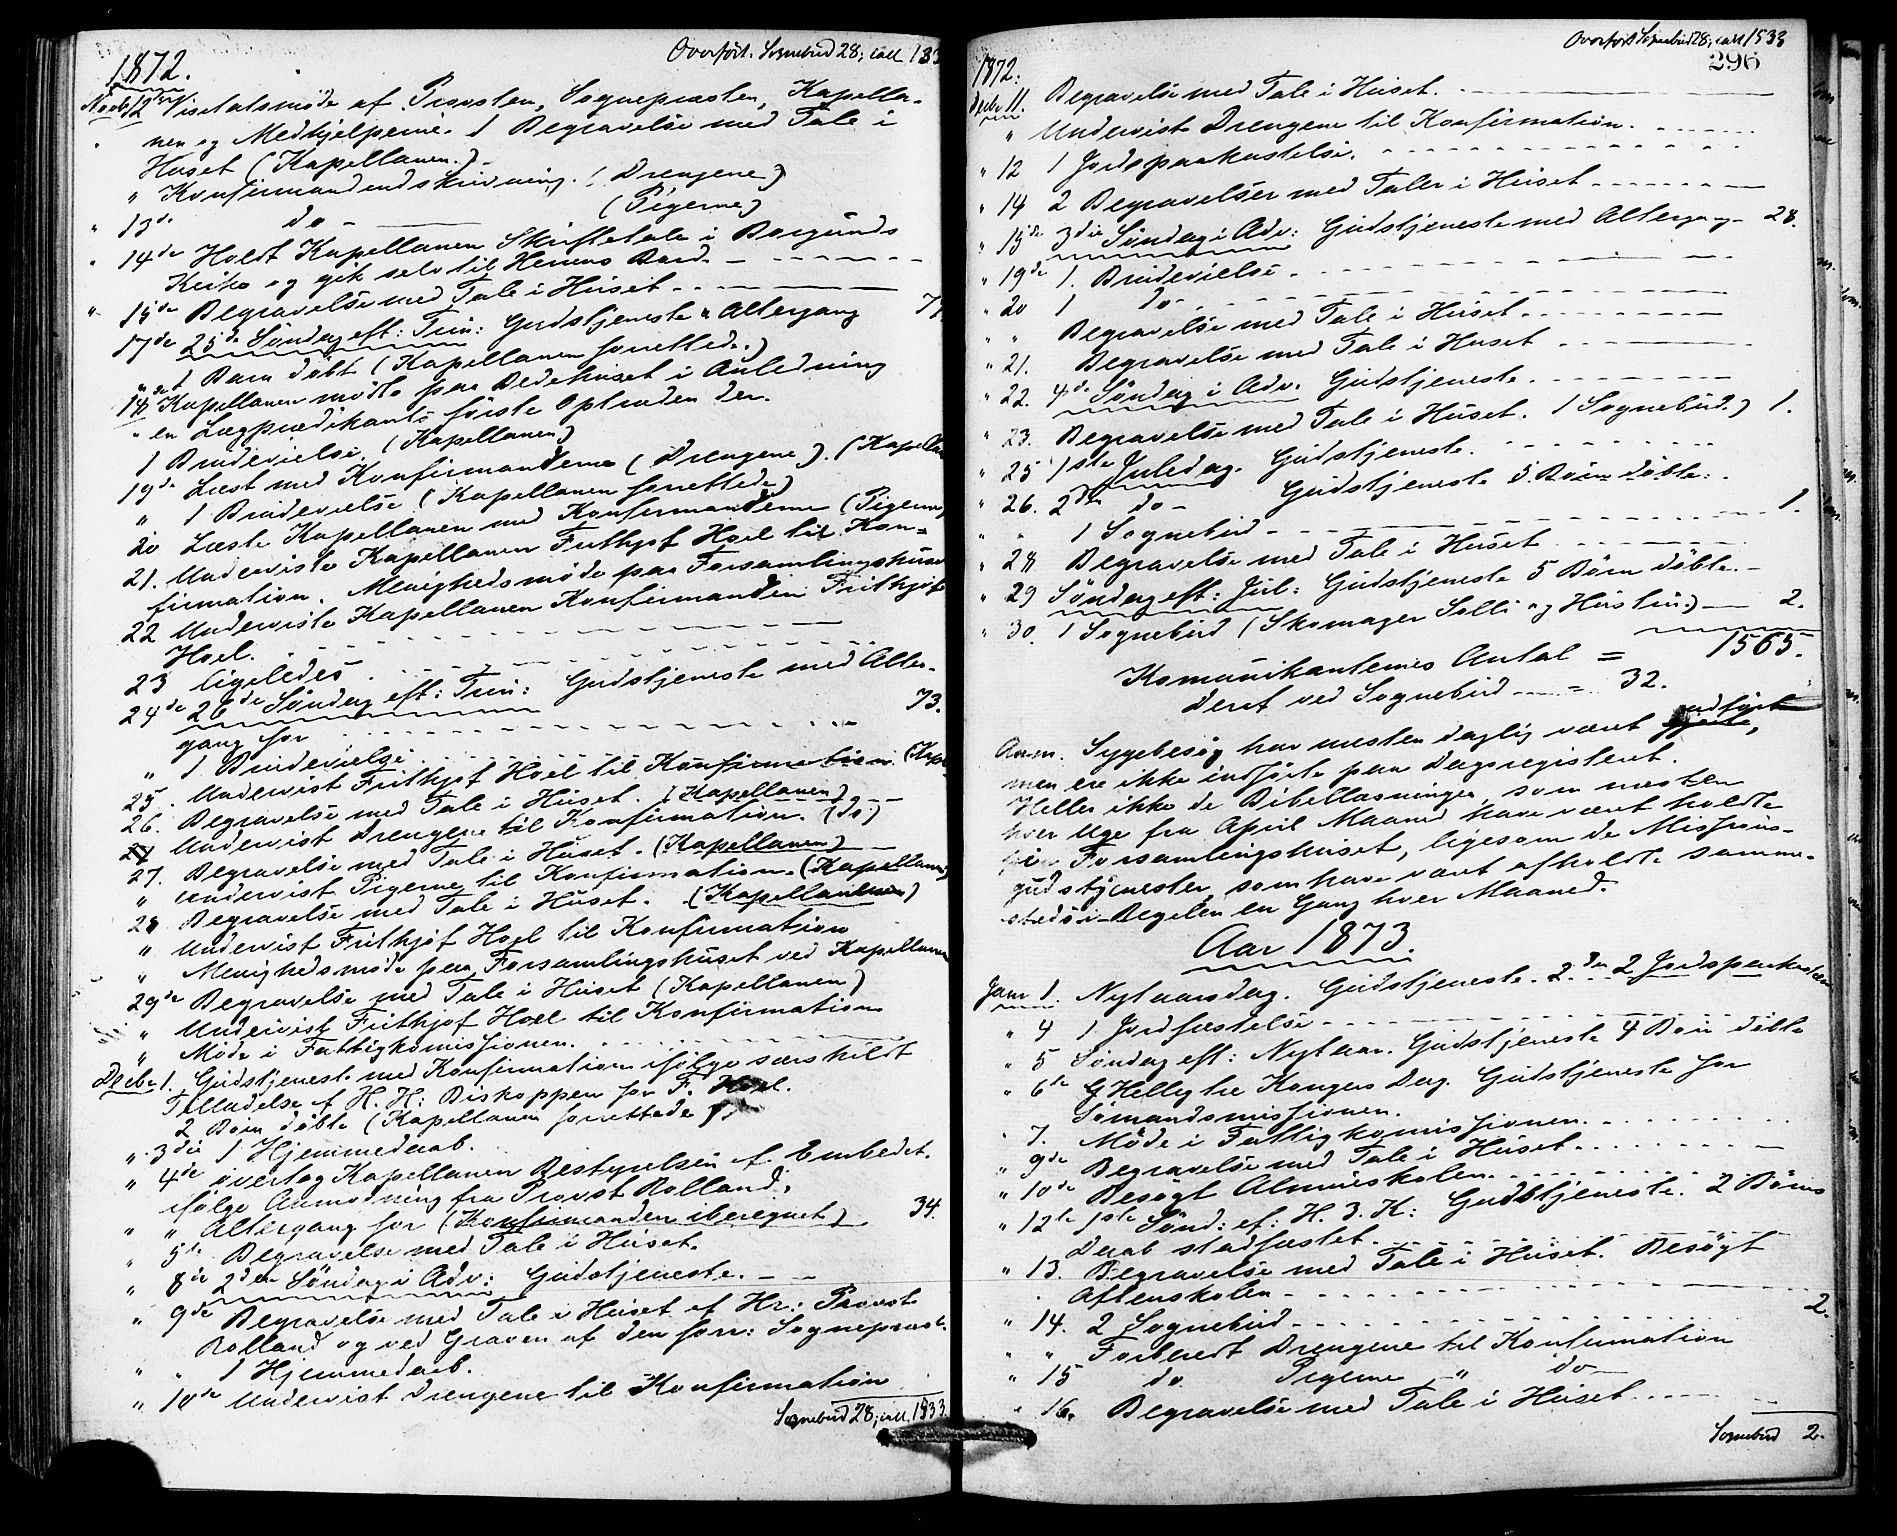 Overført. Sognebud 28; iall 133
1872.
Novb 12te Visitatsmøde af Provsten, Sognepræsten, Kapella-
nen og Medhjelperne. 1 Begravelse med Tale i
Huset (Kapellanen.)
" Konfirmandindskrivning. (Drengene)
" 13de do - (Pigerne)
" 14de Holdt Kapellanen Skriftetale i Borgunds
Kirke og gik selv til Herrens Bord. -
" 15de Begravelse med Tale i Huset -
17de 25de Søndag eft: Trin: Gudstjeneste " Altergang 7
" 1 Barn døbt (Kapellanen forrettede.)
18de Kapellanen mødte paa Bedehuset i Anledning
" en Lægprædikants første Optræden der.
1 Brudevielse. (Kapellanen)
19de Læst med Konfirmanderne (Drengene). (Kapellan
" 1 Brudevielse (Kapellanen forrettede)
20 Læste Kapellanen med Konfirmanderne (Pigerne)
21. Underviste Kapellanen Frithjof Hoel til Kon-
firmation. Menighedsmøde paa Forsamlingshuset
22 Underviste Kapellanen Konfirmanden Frithjof
Hoel.
23 ligeledes.
24de 26de Søndag eft: Trin: Gudstjeneste med Alter-
gang for 73.
" 1 Brudevielse
25. Undervist Frithjof Hoel til Konfirmation. (Kap
26. Begravelse med Tale i Huset. (Kapellanen)
Undervist Drengene til Konfirmation. (do)
27. Begravelse med Tale i Huset. (Kapellanen)
" Undervist Pigerne til Konfirmation. (Kapellanen)
28 Begravelse med Tale i Huset. (Kapellanen)
" Undervist Frithjof Hoel til Konfirmation
" Menighedsmøde paa Forsamlingshuset ved Kapellanen
29de Begravelse med Tale i Huset (Kapellanen)
" Undervist Frithjof Hoel til Konfirmation
" Møde i Fattigkomissionen.
Decbr 1. Gudstjeneste med Konfirmation ifølge særskildt
Tilladelse af H. H: Biskoppen for F. Hoel.
2 Børn døbte (Kapellanen forrettede).
" 3die 1 Hjemmedaab.
" 4de overtog Kapellanen Bestyrelsen af Embedet.
ifølge Anmodning fra Provst Rolland.
" " Altergang for (Konfirmanden iberegnet) 34.
" 5te Begravelse med Tale i Huset.
" 8de 2den Søndag i Adv: Gudstjeneste. - -
" 9de Begravelse med Tale i Huset af Hr: Provst
Rolland og ved Graven af den forr: Sognepræst.
" " 1 Hjemmedaab.
" 10de Undervist Drengene til Konfirmation
Sognebud 28; iall 1533.
Overført Sognebud 28; iall 1533
296
1872.
Decbr 11. Begravelse med Tale i Huset.
" Undervist Drengene til Konfirmation.
" 12 1 Jordspaakastelse.
" 14 2 Begravelser med Taler i Huset
" 15de 3die Søndag i Adv: Gudstjeneste med Altergang - 28.
" 19de 1. Brudevielse.
" 20 1 do -
" " Begravelse med Tale i Huset
" 21. Begravelse med Tale i Huset
" 22. 4de Søndag i Adv. Gudstjeneste.
" 23. Begravelse med Tale i Huset. 1 Sognebud.) 1.
" 25 1ste Juledag. Gudstjeneste.
" 26. 2den do - Gudstjeneste 5 Børn døbte.
" " 1 Sognebud - 1.
" 28 Begravelse med Tale i Huset
" 29 Søndag eft: Jul: Gudstjeneste 5 Børn døbte. -
" 30. 1 Sognebud (Skomager Solli og Hustru) 2.
Komunikanternes Antal = 1565.
Deraf ved Sognebud = 32.
Anm. Sygebesøg har næsten daglig været udført,
men ere ikke indførte paa Dagsregisteret.
Heller ikke de Bibellæsninger, som næsten
hver Uge fra April Maaned have været holdte
paa Forsamlingshuset, ligesom de Missions-
gudstjenester, som have været afholdte samme-
steds i Regelen en Gang hver Maaned.
Aar 1873.
Janr 1. Nytaarsdag. Gudstjeneste. 2den 2 Jordspaakastelser
" 4 1 Jordfæstelse
" 5 Søndag eft: Nytaar. Gudstjeneste 4 Børn døbte
" 6te Hellig tre Kongers Dag. Gudstjeneste for
Sømandsmissionen.
" 7. Møde i Fattigkomissionen.
" 9de Begravelse med Tale i Huset.
" 10de Besøgt Almueskolen.
" 12te 1ste Sønd: ef: H. 3. K: Gudstjeneste. 2 Børns
Daab stadfæstet.
" 13. Begravelse med Tale i Huset. Besøgt
Aftenskolen -
" 14. 2 Sognebud 2.
" " Forberedt Drengene til Konfirmation
" 15 do. Pigerne " do -
" 16. Begravelse med Tale i Huset
Sognebud 2.